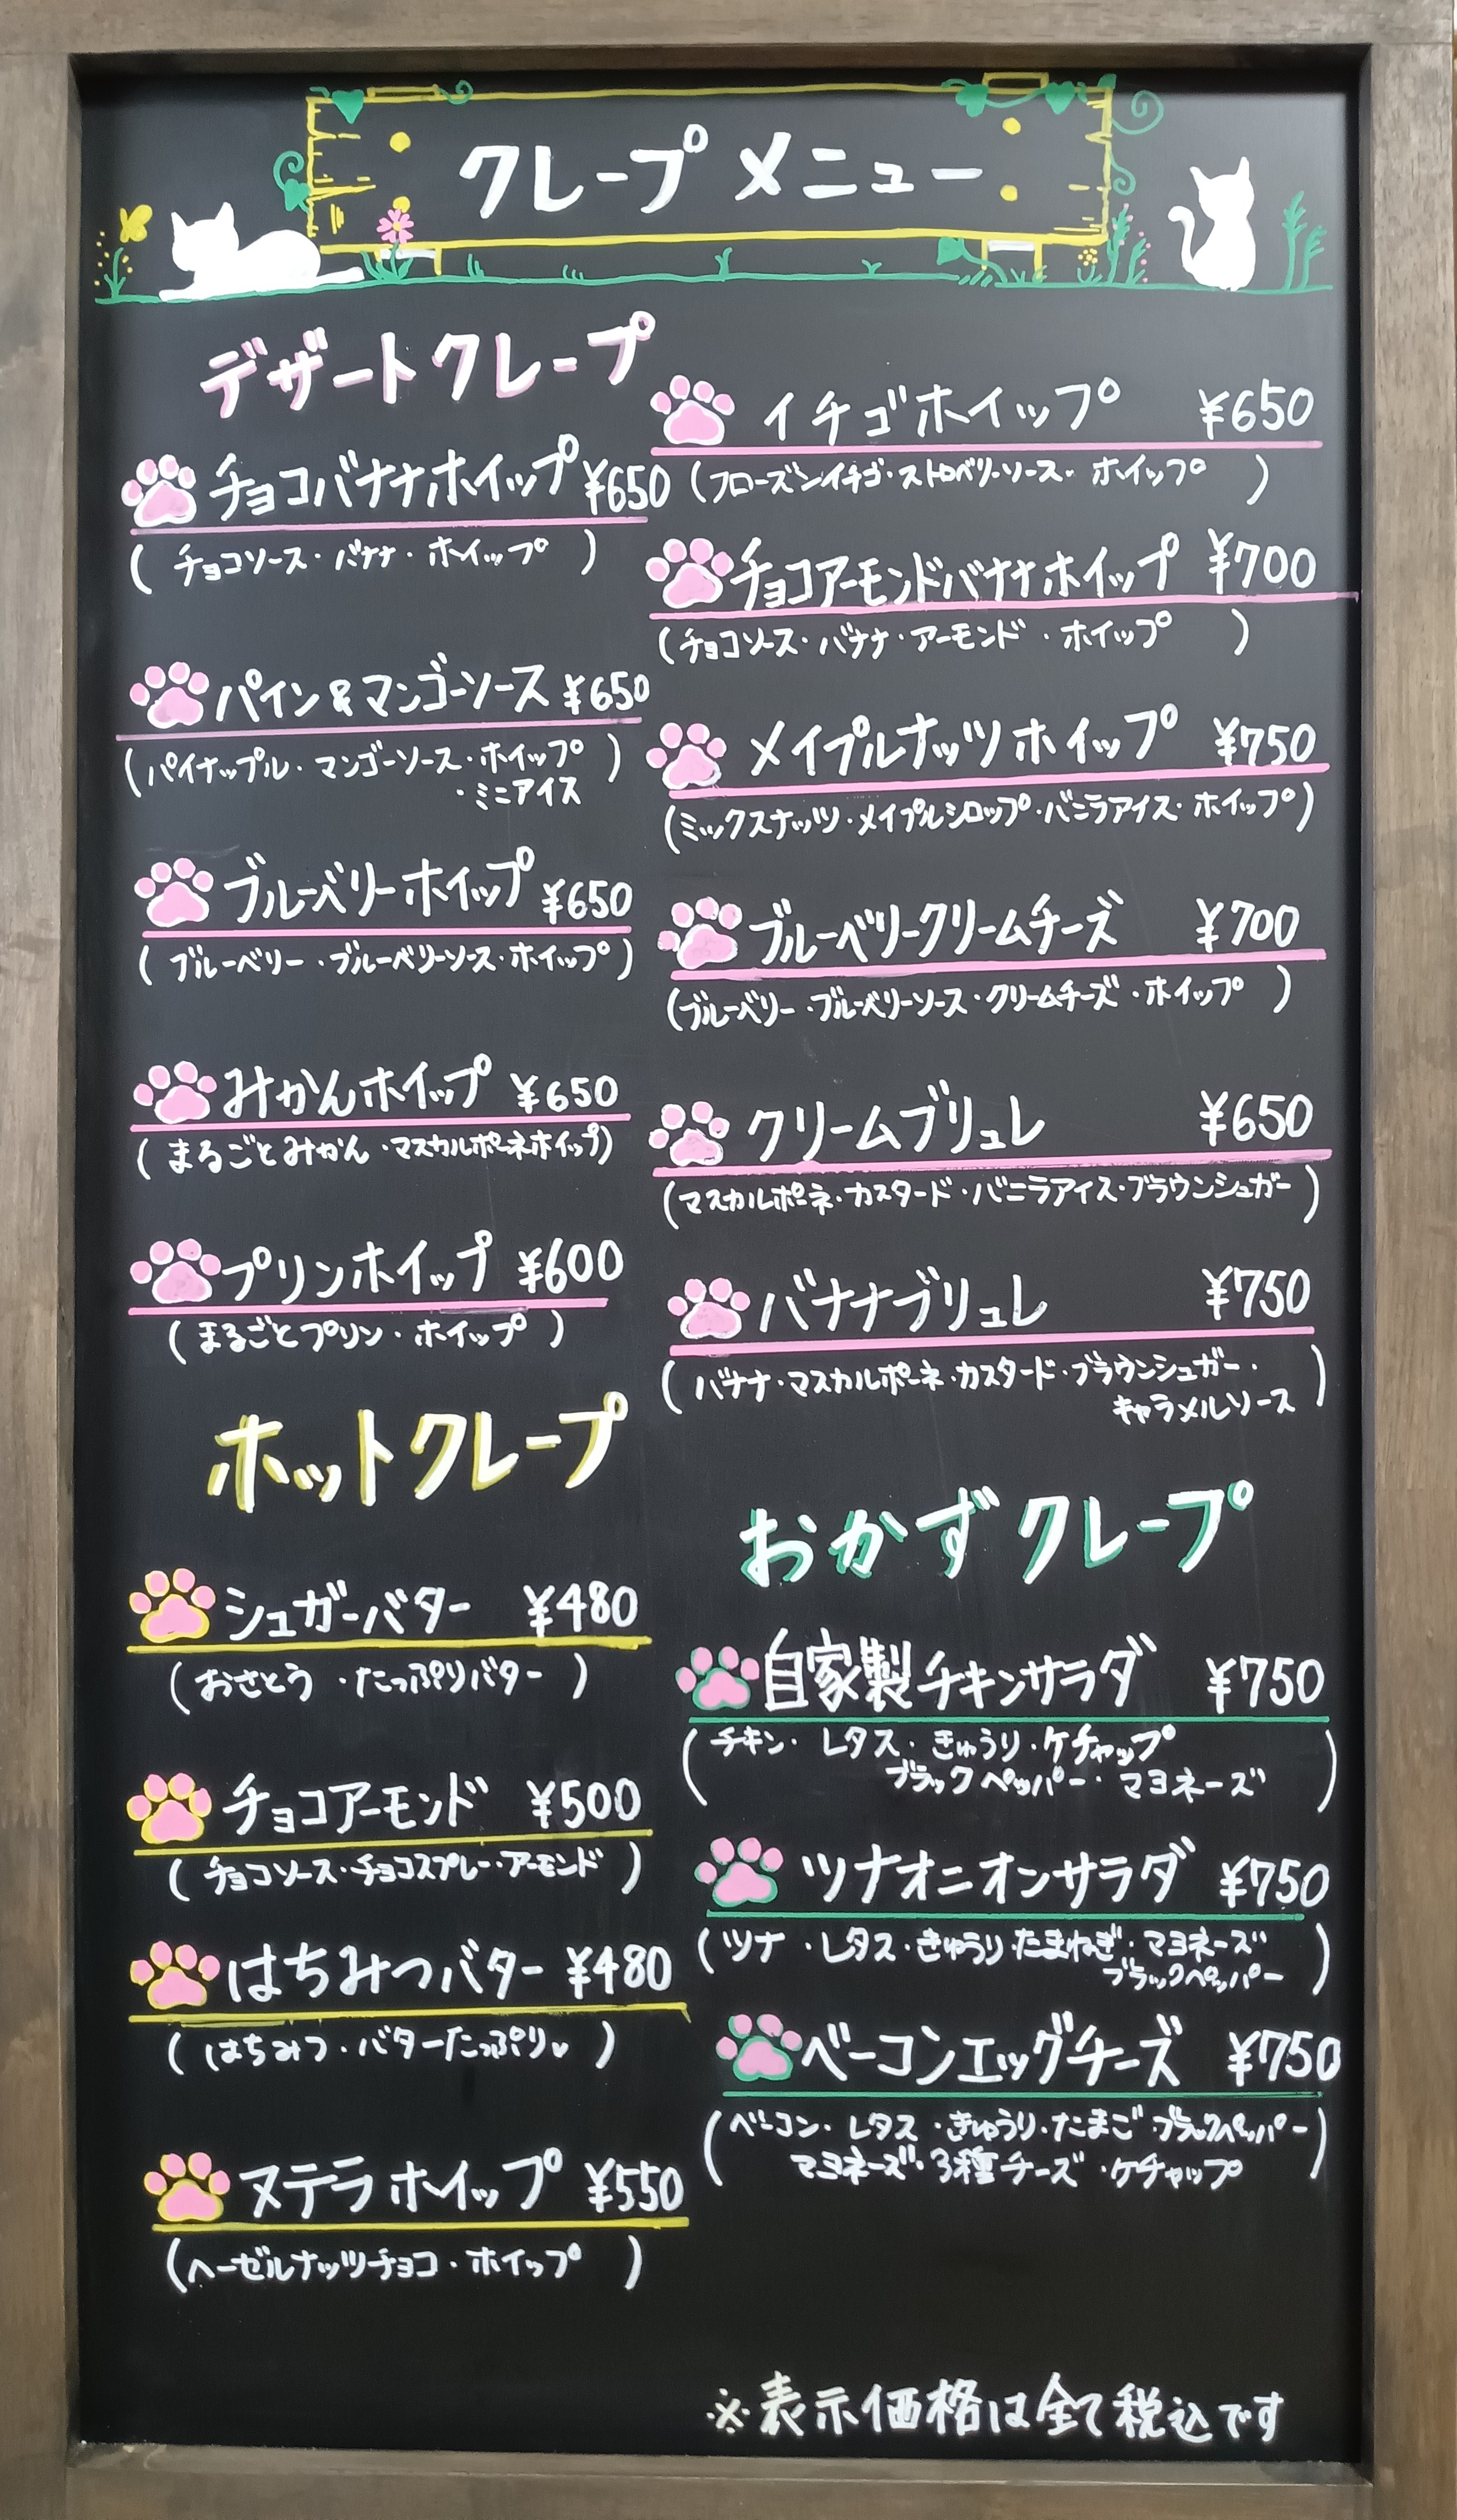 クレープ メニュー
デザートクレープ
チョコバナナホイップ ¥650
( チョコソース・バナナ・ホイップ )
パイン&マンゴーソース ¥650
(パイナップル・マンゴーソース・ホイップ
・ミニアイス )
ブルーベリーホイップ ¥650
( ブルーベリー・ブルーベリーソース・ホイップ )
みかんホイップ ¥650
( まるごとみかん・マスカルポーネホイップ)
プリンホイップ ¥600
( まるごとプリン・ホイップ )
イチゴホイップ ¥650
(フローズンイチゴ・ストロベリーソース・ホイップ )
チョコアーモンドバナナホイップ ¥700
(チョコソース・バナナ・アーモンド・ホイップ )
メイプルナッツホイップ ¥750
(ミックスナッツ・メイプルシロップ・バニラアイス・ホイップ)
ブルーベリークリームチーズ ¥700
(ブルーベリー・ブルーベリーソース・クリームチーズ・ホイップ )
クリームブリュレ ¥650
(マスカルポーネ・カスタード・バニラアイス・ブラウンシュガー )
バナナブリュレ ¥750
( バナナ・マスカルポーネ・カスタード・ブラウンシュガー・
キャラメルソース )
ホットクレープ
シュガーバター ¥480
( おさとう・たっぷりバター )
チョコアーモンド ¥500
( チョコソース・チョコスプレー・アーモンド )
はちみつバター ¥480
( はちみつ・バターたっぷり♥ )
ヌテラホイップ ¥550
(ヘーゼルナッツチョコ・ホイップ )
おかずクレープ
自家製チキンサラダ ¥750
(チキン・レタス・きゅうり・ケチャップ
ブラックペッパー・マヨネーズ )
ツナオニオンサラダ ¥750
(ツナ・レタス・きゅうり・たまねぎ・マヨネーズ
ブラックペッパー )
ベーコンエッグチーズ ¥750
(ベーコン・レタス・きゅうり・たまご・ブラックペッパー
マヨネーズ・3種チーズ・ケチャップ )
※表示価格は全て税込です